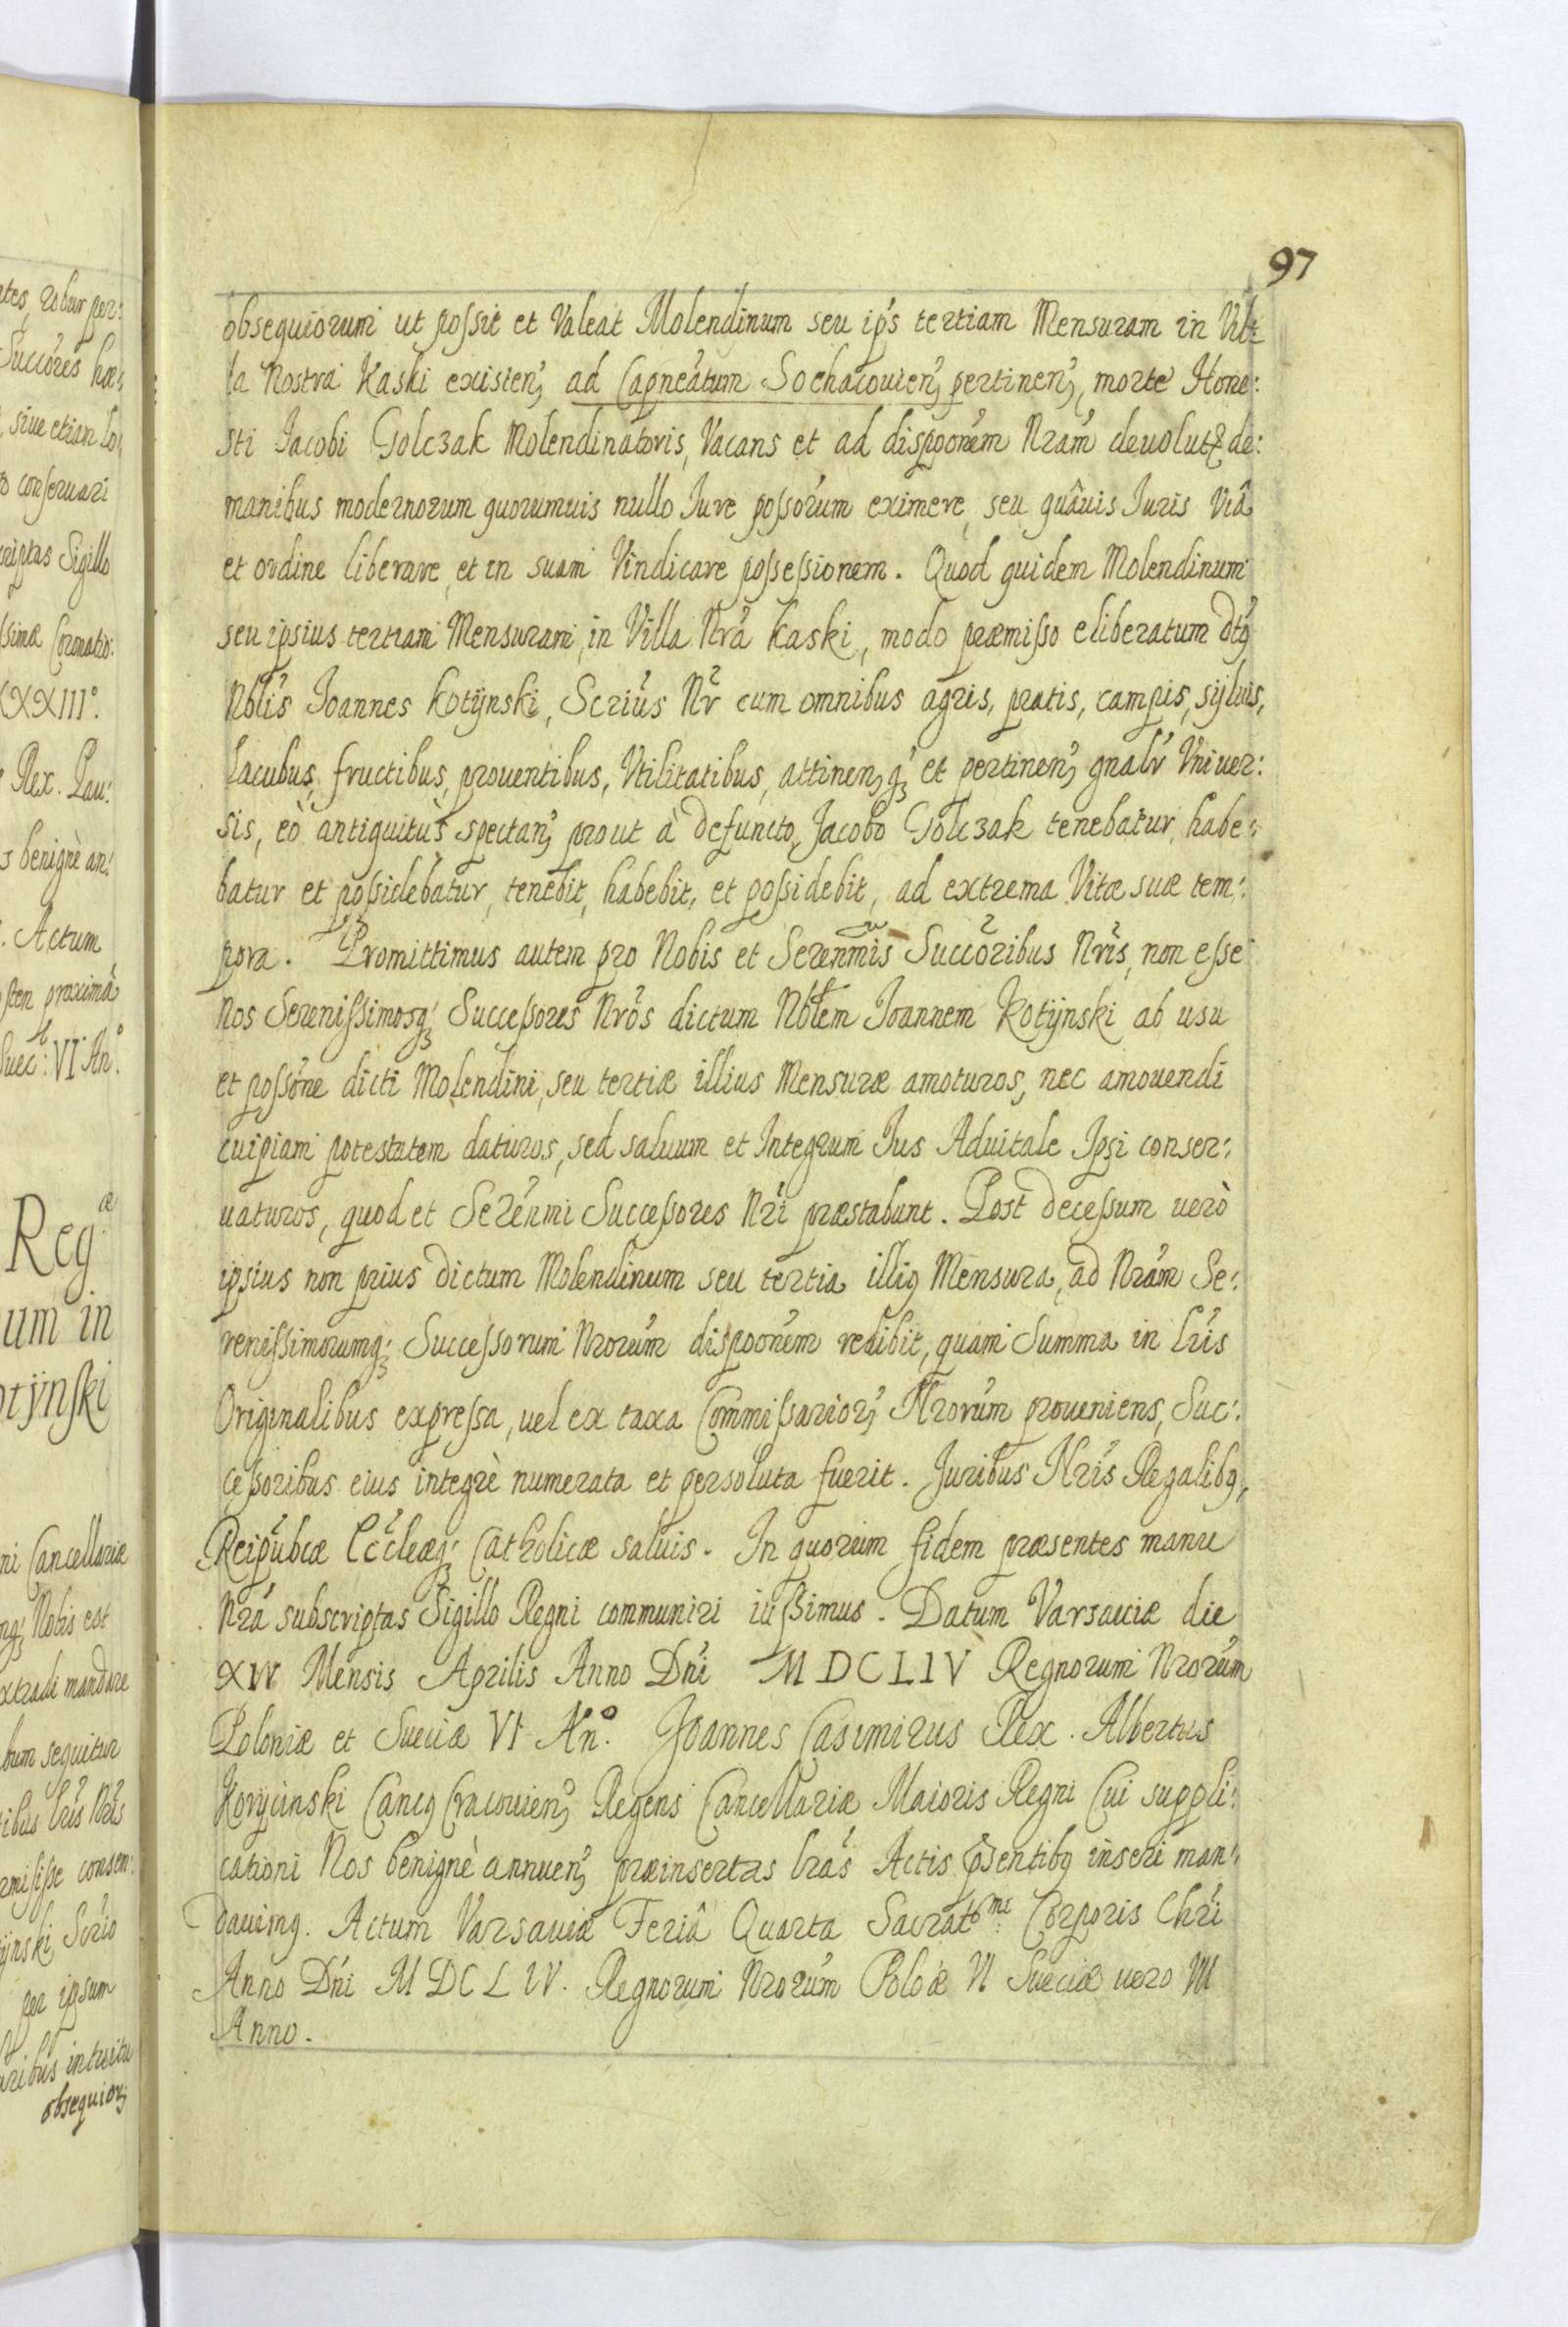 97
obsequiorum ut possit et Valeat Molendinum seu ip's tertiam Mensuram in Vil:
la Nostra Kaski existen, ad Capneatum Sochacouien, pertinen, morte Hone:
sti Jacobi Golczak Molendinatoris, Vacans et ad dispoonem Nram deuolut de:
manibus modernorum quorumuis nullo Jure possorum eximere, seu quâuis Juris Viâ
et ordine liberare, et in suam Vindicare possessionem. Quod quidem Molendinum
seu ipsius tertiam Mensuram, in Villa Nrâ Kaski, modo præmisso eliberatum dtq
Nblis Joannes Kotÿnski, Scrius Nr cum omnibus agris, pratis, campis, syluis,
lacubus, fructibus, prouentibus, Vtilitatibus, attinenq et pertinen, gnalr Vniuer:
sis, eò antiquitùs spectan, prout à defuncto, Jacobo Golczak tenebatur, habe:
batur et possidebatur, tenebit, habebit, et possidebit, ad extrema Vitæ suæ tem:
pora. Promittimus autem pro Nobis et Serenmis Succoribus Nris, non esse
Nos Serenissimosq; Successores Nros dictum Nblem Joannem Kotÿnski ab usu
et possone dicti Molendini, seu tertiæ illius Mensuræ amoturos, nec amouendi
cuipiam potestatem daturos, sed saluum et Integrum Jus Aduitale Ipsi conser:
uaturos, quod et Serenmi Successores Nri præstabunt. Post decessum uerò
ipsius non prius dictum Molendinum seu tertia illiq Mensura, ad Nram Se:
renissimorumq; Successorum Nrorum dispoonem redibit, quam Summa in Lris
Originalibus expressa, uel ex taxa Commissarior, Nrorum proueniens, Suc:
cessoribus eius integrè numerata et persoluta fuerit. Juribus Nris Regalibq,
Reipubcæ Eccleæq; Catholicæ saluis. In quorum fidem præsentes manu
Nrâ subscriptas Sigillo Regni communiri iussimus. Datum Varsauiæ die
XIV Mensis Aprilis Anno Dni MDCLIV Regnorum Nrorum
Poloniæ et Sueciæ VI Anº. Joannes Casimirus Rex. Albertus
Korycinski Cancq Cracouien, Regens Cancellariæ Maioris Regni Cui suppli:
cationi Nos benignè annuen, præinsertas lras Actis psentibq inseri man:
dauimq. Actum Varsauiæ Feriâ Quarta Sacratme Corporis Chri
Anno Dni MDCLIV. Regnorum Nrorum Poloæ VI Sueciæ uero VII
Anno.